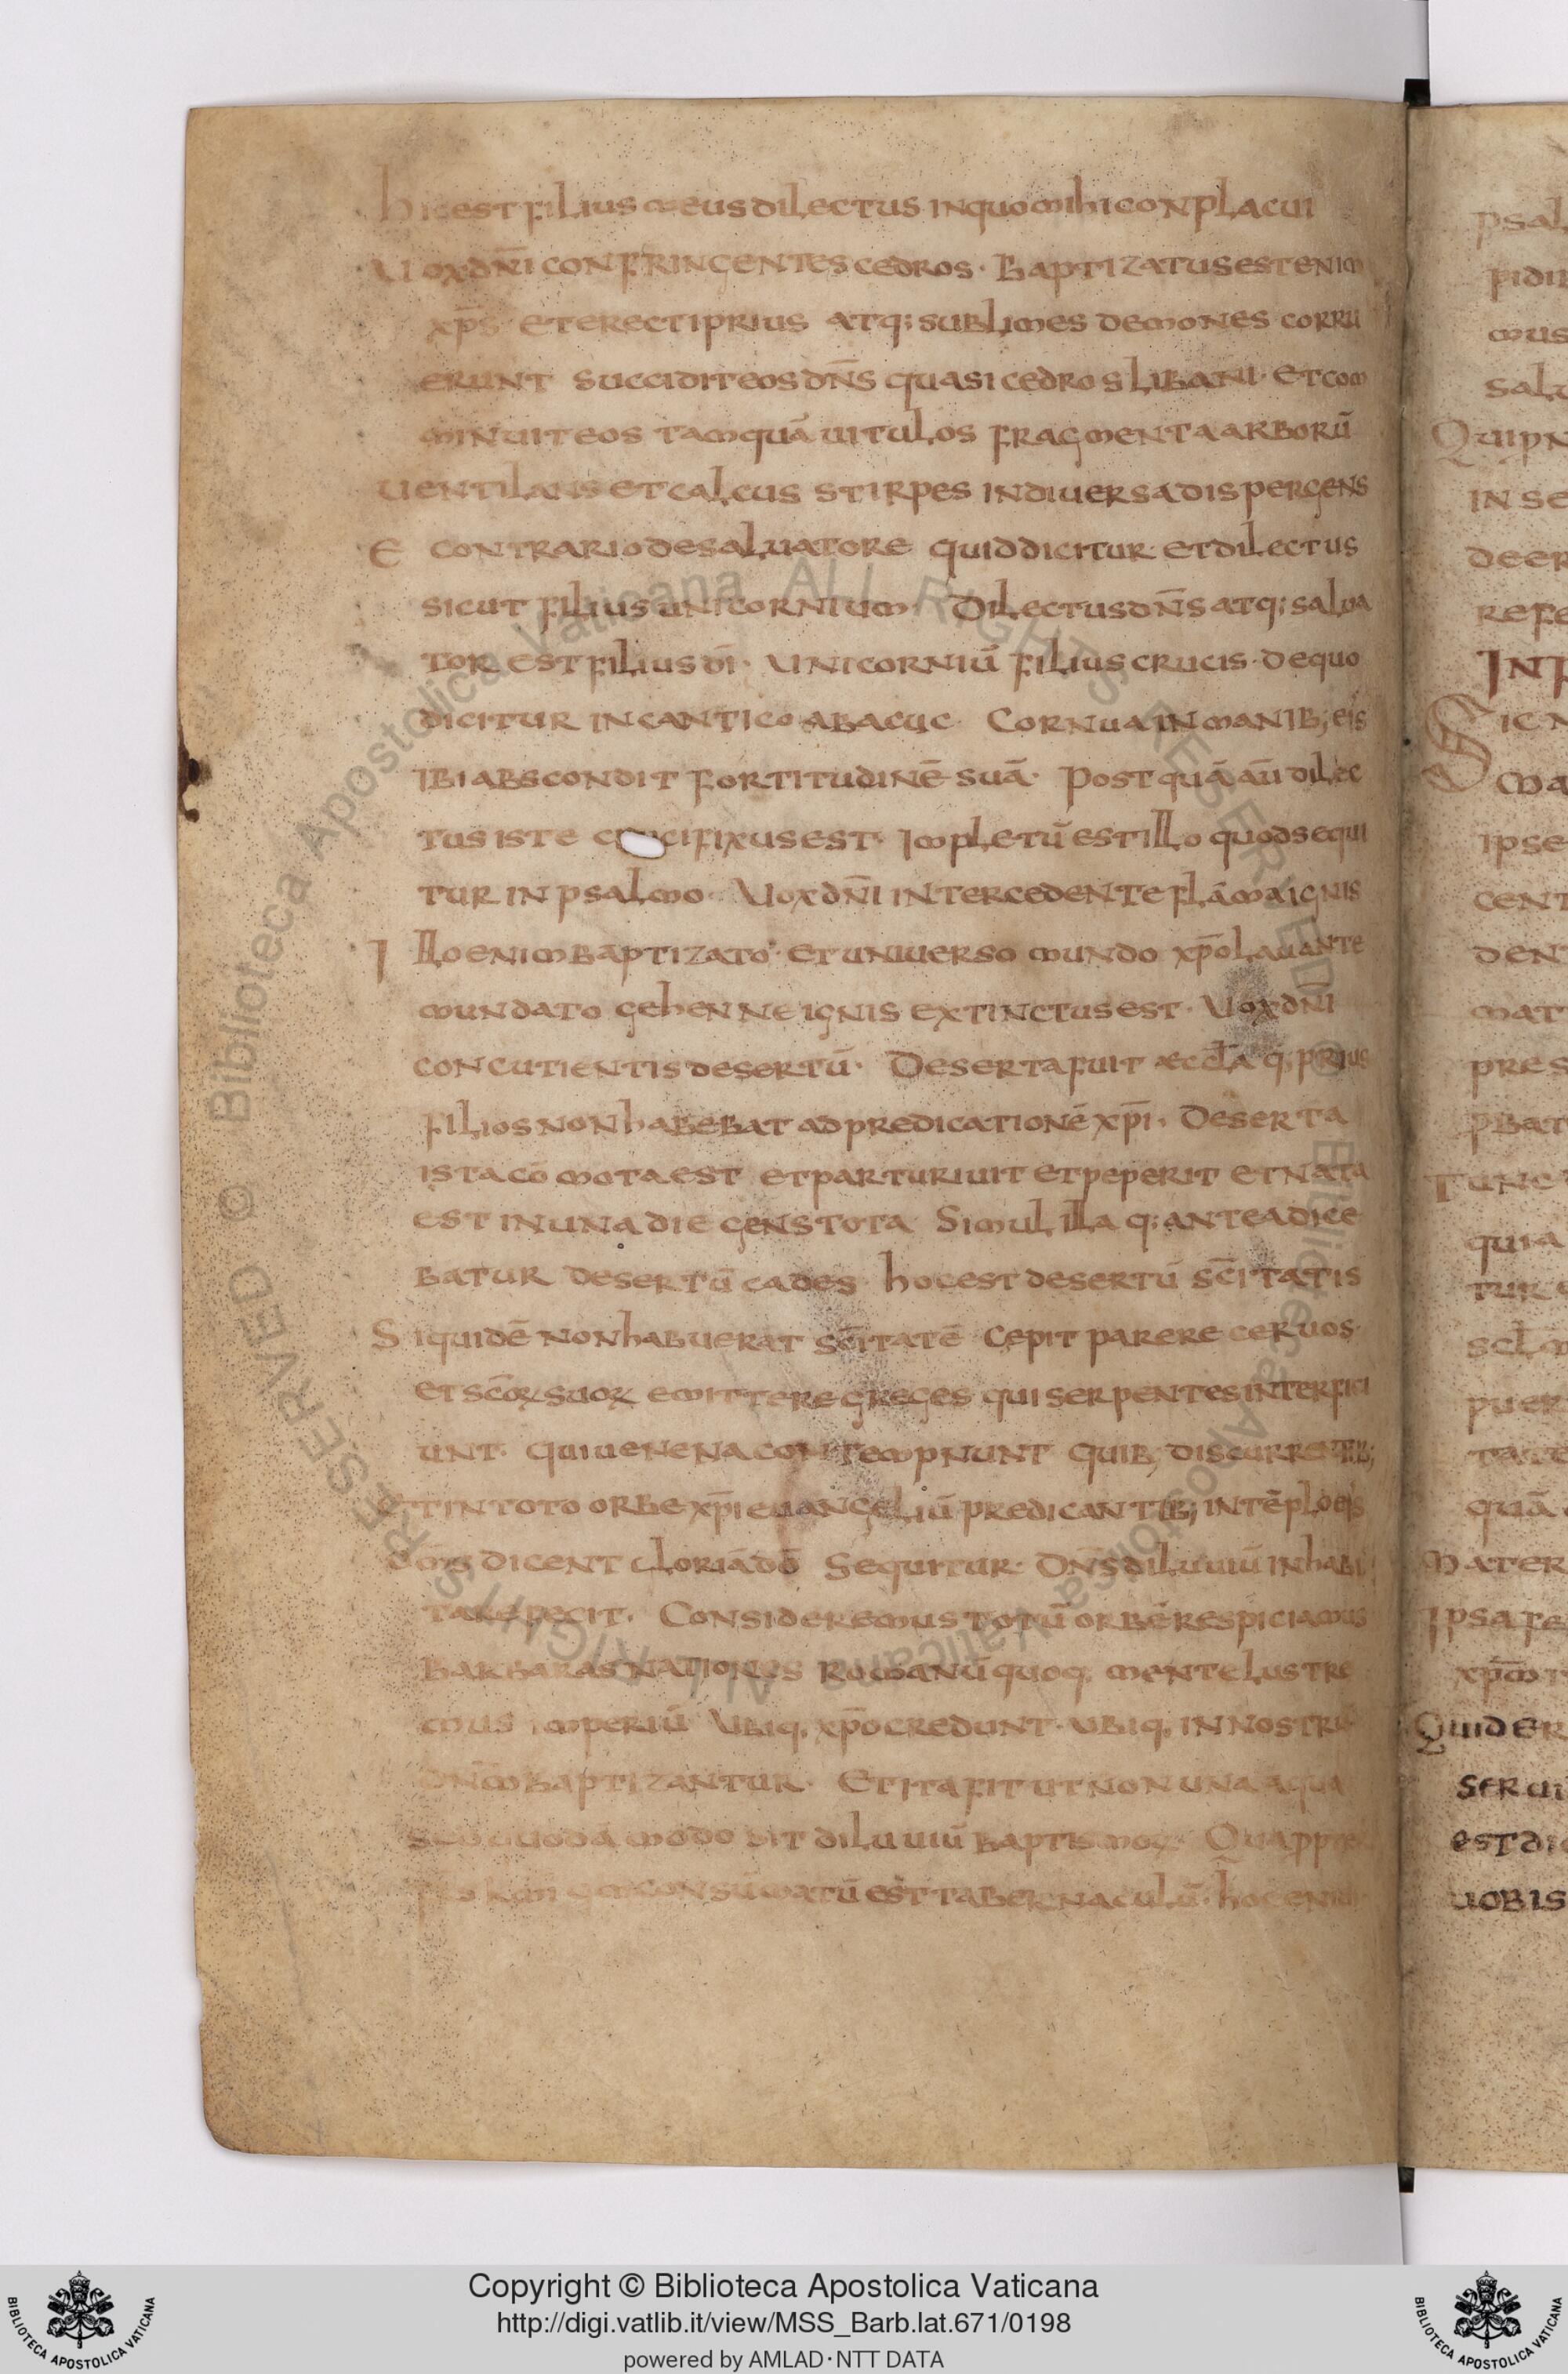 hic est filius meus dilectus in quo mihi conplacui
Uox dn̄i confringentes cedros · Baptizatus est enim
xp̄s et erecti prius atq; sublimes demones corru
erunt succidit eos dn̄s quasi cedros libani · et com
minuit eos tamquā uitulos fragmenta arborū
uentilans et calcus stirpes in diuersa dispergens
E contrario de saluatore quid dicitur · et dilectus
sicut filius unicornium · Dilectus dn̄s atq; salua
tor est filius dī · Unicorniū filius crucis · de quo
dicitur in cantico abacuc · Cornua in manib; eis
Ibi abscondit fortitudinē suā · Postquā aū dilec
tus iste crucifixus est · Impletū est illo quod sequi
tur in psalmo · Uox dn̄i intercedente flāma ignis
Illo enim baptizato · et uniuerso mundo xp̄o lauante
mundato gehenne ignis extinctus est · Uox dn̄i
concutientis desertū · Deserta fuit æccla q; prius
filios non habebat ad predicationē xp̄i · Deserta
ista cōmota est et parturiuit et peperit et nata
est in una die gens tota Simul illa q; antea dice
batur desertū cades · hoc est desertū sc̄itatis
Siquidē non habuerat sc̄itatē cepit parere ceruos ·
et sc̄oꝝ suoꝝ emittere greges qui serpentes interfici
unt · qui uenena contempnunt quib; discurrentib;
et in toto orbe xp̄i euangeliū predicantib; in tēplo eis
om̄s dicent gloriā dō Sequitur · Dn̄s diluuiū inhabi
tare fecit · Consideremus totū orbē respiciamus
barbaras nationes romanū quoq. mente lustre
mus imperiū Ubiq. xp̄o credunt · ubiq. in nostrū
dn̄m baptizantur · Et ita fit ut non una aqua
sed quodā modo sit diluuiū baptismoꝝ ·
consūmatū est tabernaculū · hoc enim
psal
fidi
mus
salu
Quip n
in se
deer
refe
In
Sic n
ma
ipse
cent
den
mat
pres
pbat
Tunc
quia
tur
puer
tate
quā
mater
Ipsa fe
xp̄m
Quid er
serui
est dic
uobis
© Biblioteca Apostolica Vaticana ALL RIGHTS RESERVED
© Biblioteca Apostolica Vaticana ALL RIGHTS RESERVED
Copyright © Biblioteca Apostolica Vaticana
http://digi.vatlib.it/view/MSS_Barb.lat.671/0198
powered by AMLAD·NTT DATA
BIBLIOTECA APOSTOLICA VATICANA
BIBLIOTECA APOSTOLICA VATICANA